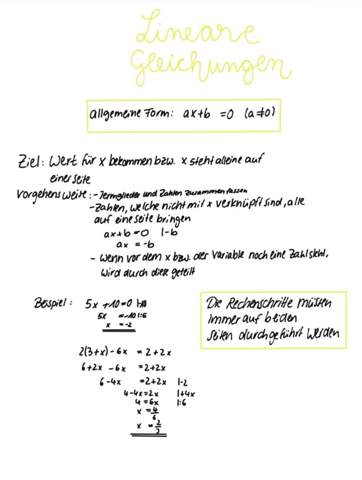 Lineare
Gleichungen
allgemeine Form: ax+b =0 (a≠0)
Ziel: Wert für x bekommen bzw. x steht alleine auf
einer Seite
Vorgehensweise: - Termglieder und Zahlen zusammenfassen
- Zahlen, welche nicht mit x verknüpft sind, alle
auf eine Seite bringen
ax+b =0 |-b
ax = -b
- wenn vor dem x bzw. der Variable noch eine Zahl steht,
wird durch diese geteilt
Beispiel: 5x +10 =0 |-10
5x = -10 |:5
x = -2
Die Rechenschritte müssen
immer auf beiden
Seiten durchgeführt werden
2(3+x) -6x = 2+2x
6+2x -6x = 2+2x
6-4x = 2+2x |-2
4-4x = 2x |+4x
4 = 6x |:6
x = 4/6
x = 2/3